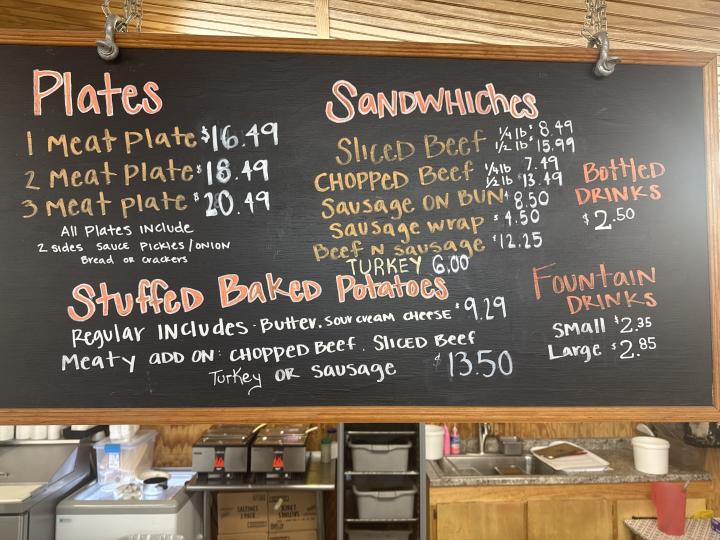 Plates
1 Meat Plate $16.49
2 Meat Plate $18.49
3 Meat plate $20.49
All Plates Include
2 sides sauce Pickles/onion
Bread or crackers
SANDWHiches
SLICED Beef 1/4 lb $8.49
1/2 lb $15.99
CHOPPED Beef 1/4 lb 7.49
1/2 lb $13.49
Sausage ON BUN $8.50
Sausage wrap $4.50
Beef N sausage $12.25
TURKEY 6.00
Bottled
DRINKS
$2.50
Stuffed Baked Potatoes
Regular Includes: Butter, sour cream cheese $9.29
Meaty ADD ON: CHOPPED Beef. Sliced Beef
Turkey OR sausage $13.50
Fountain
DRINKS
Small $2.35
Large $2.85